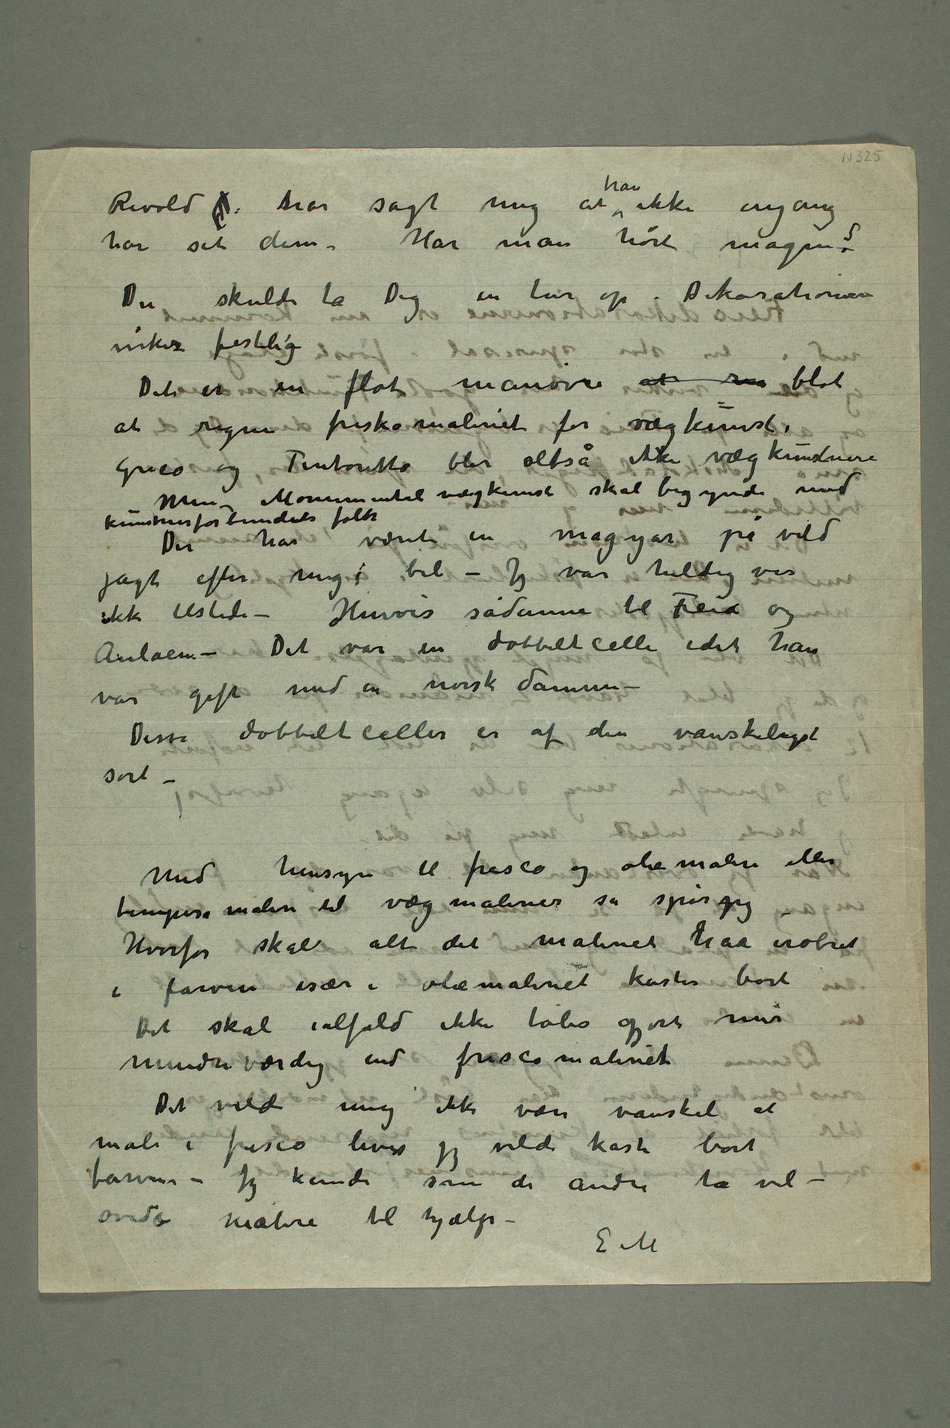 N325
Revold har sagt mig at han ikke engang
har set dem – Har man hørt magen?
Du skulde ta Dig en tur op. Dekorationerne
virker festlig
Det er en flot manøvre at blot
at regne freskomaleriet for vægkunst.
Greco og Tintoretto blir altså ikke vægkunstnere
Men – Monumental vægkunst skal begynde med
kunstnerforbundets folk
Der har været en magyar på vild
jagt efter mig i bil – Jg var heldigvis
ikke tilstede – Henvis sådanne til og
Aulaen – Det var en dobbeltcelle idet han
var gift med en norsk damme –
Disse dobbeltceller er af den vanskeligst
sort –
Med hensyn til fresco og oliemaleri eller
tempera maleri til vægmalerier så spør jg
Hvorfor skal alt det maleriet har erobret
i farven især i oliemaleriet kastes bort
Det skal ialfald ikke tåbes gjort mer
mindreværdig end frescomaleriet
Det vilde mig ikke være vanskel at
male i fresco hvis jg vilde kaste bort
farven – Jg kunde som de andre ta vel –
øvede malere til hjælp –
E M